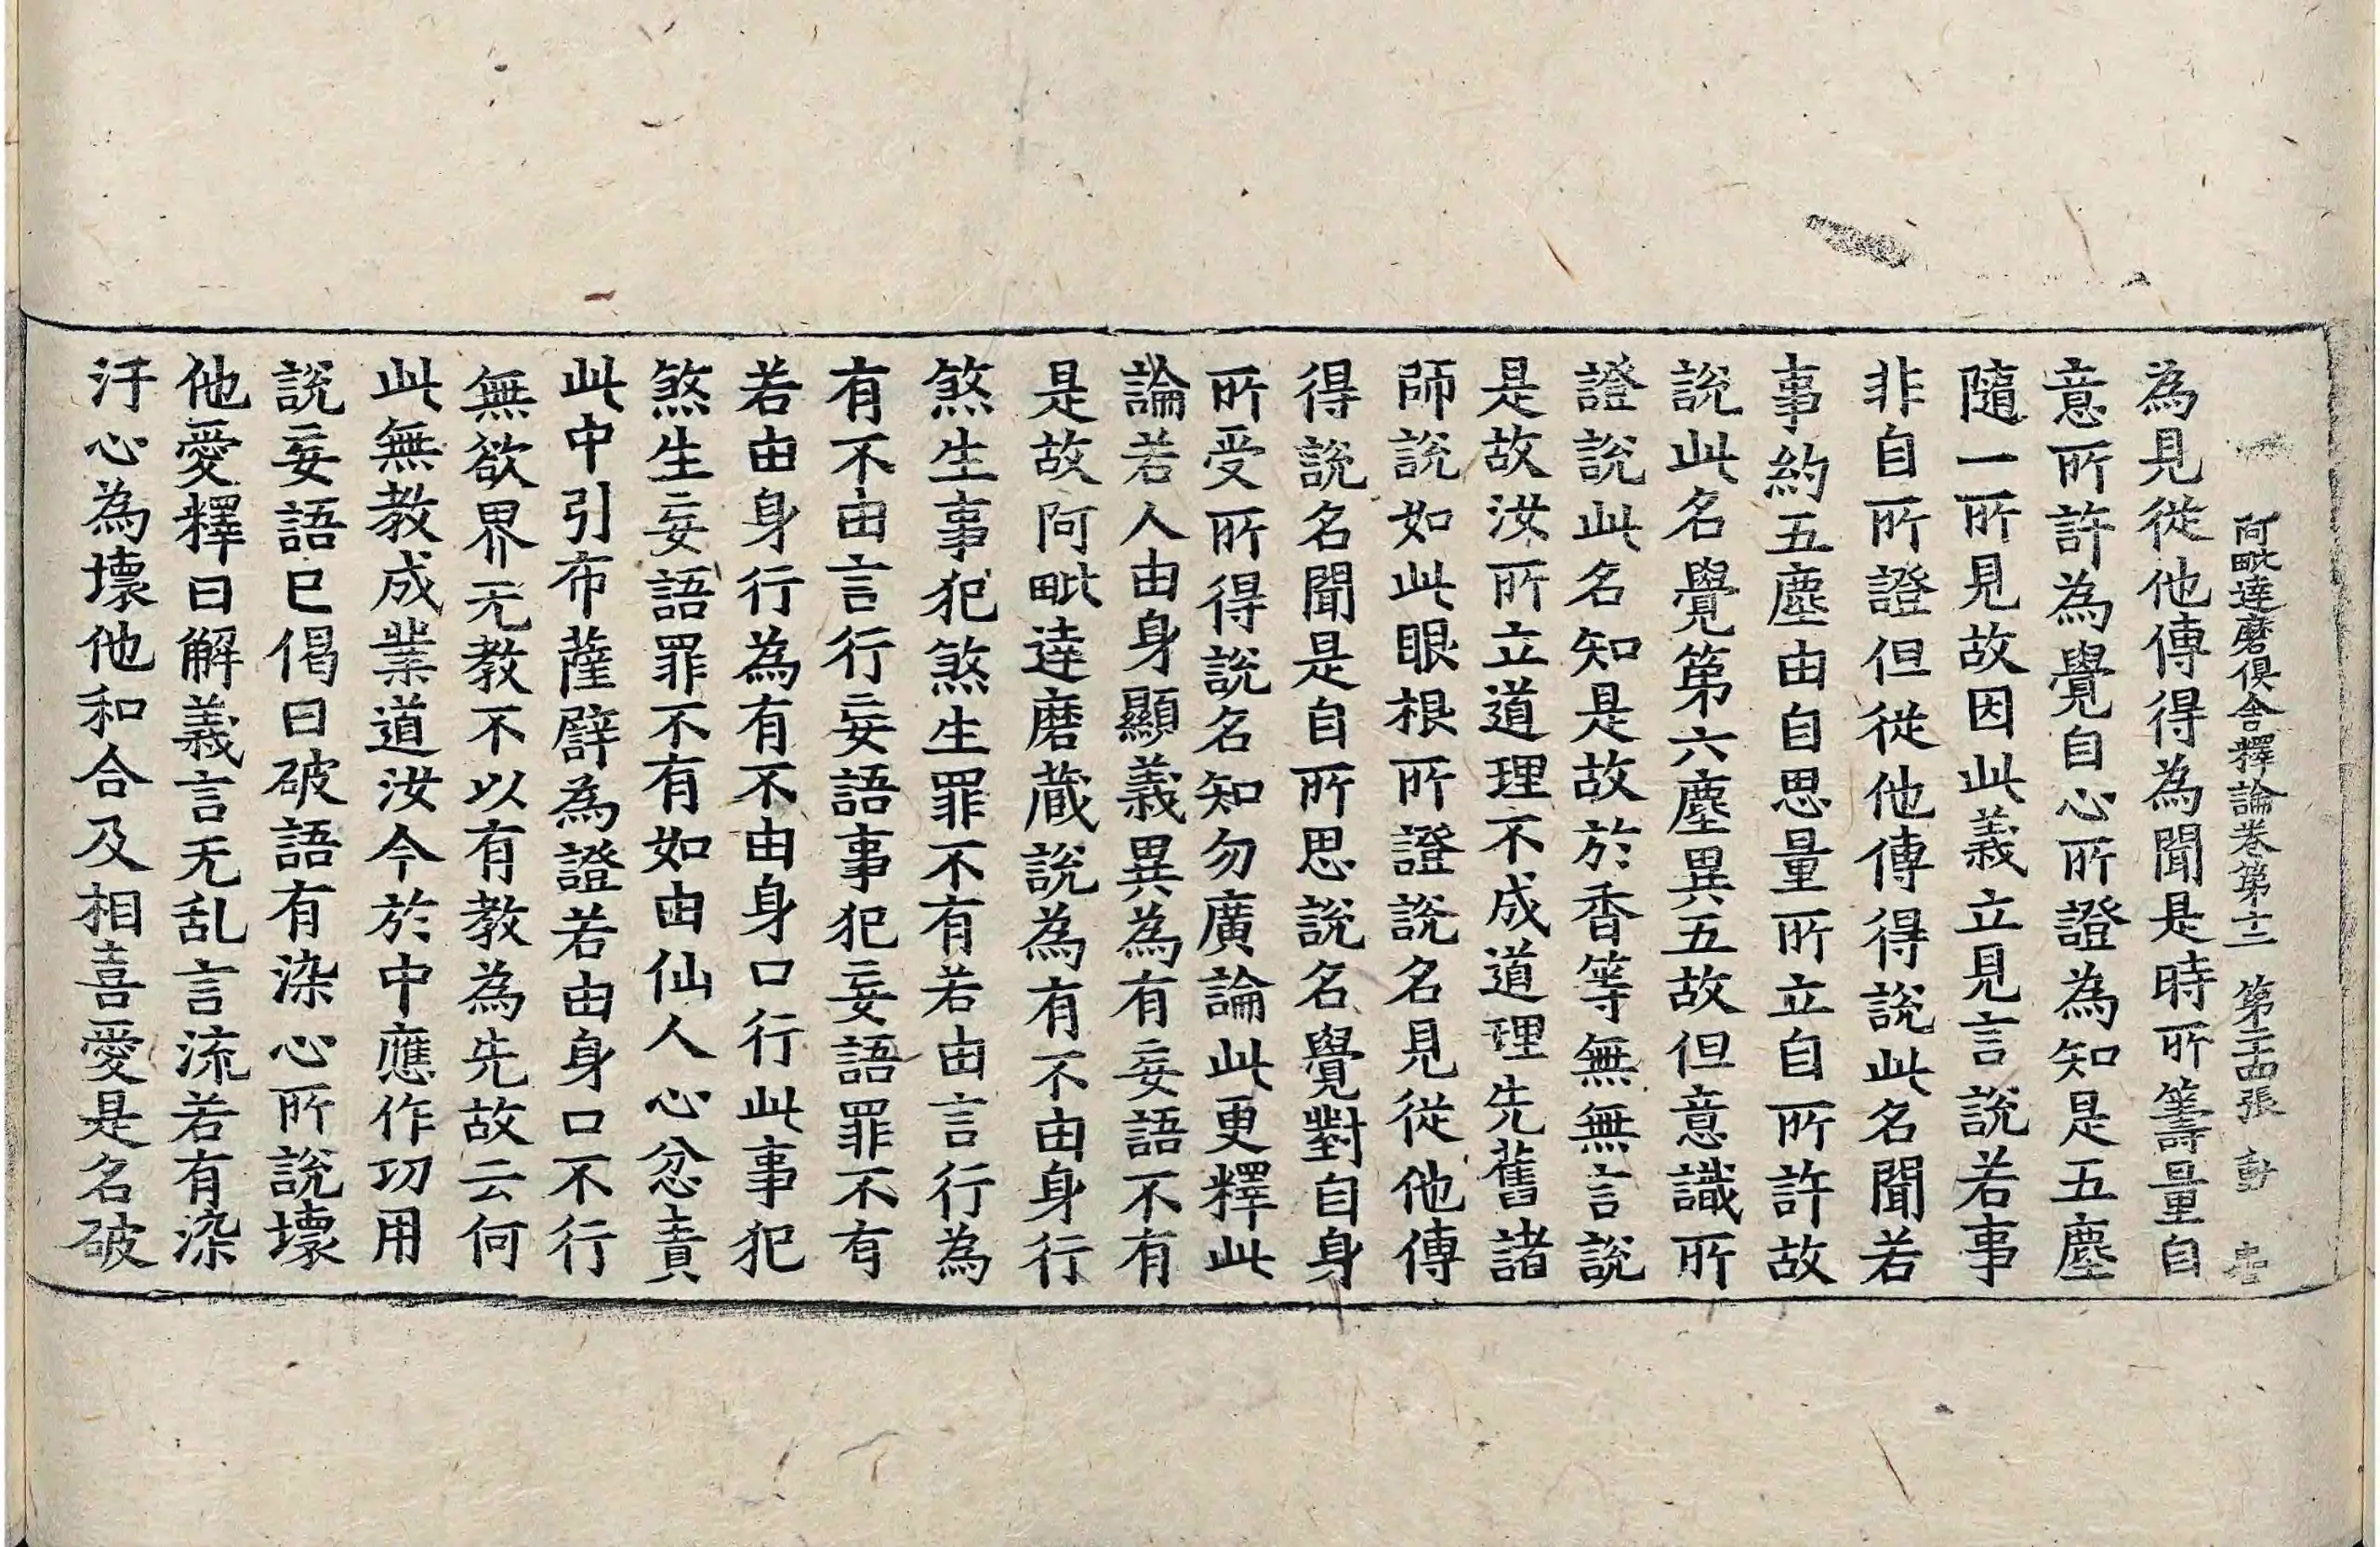 阿毗達磨俱舍釋論卷第十二 第二十四張 動
為見從他傳得為聞是時所籌量自
意所許為覺自心所證為知是五塵
隨一所見故因此義立見言說若事
非自所證但從他傳得說此名聞若
事約五塵由自思量所立自所許故
說此名覺第六塵異五故但意識所
證說此名知是故於香等無無言說
是故汝所立道理不成道理先舊諸
師說如此眼根所證說名見從他傳
得說名聞是自所思說名覺對自身
所受所得說名知勿廣論此更釋此
論若人由身顯義異為有妄語不有
是故阿毗達磨蔵說為有不由身行
煞生事犯煞生罪不有若由言行為
有不由言行妄語事犯妄語罪不有
若由身行為有不由身口行此事犯
煞生妄語罪不有如由仙人心忿責
此中引布薩辟為證若由身口不行
無欲界无教不以有教為先故云何
此無教成業道汝今於中應作功用
說妄語已偈曰破語有染心所說壞
他愛釋曰解義言无乱言流若有染
汙心為壞他和合及相喜愛是名破